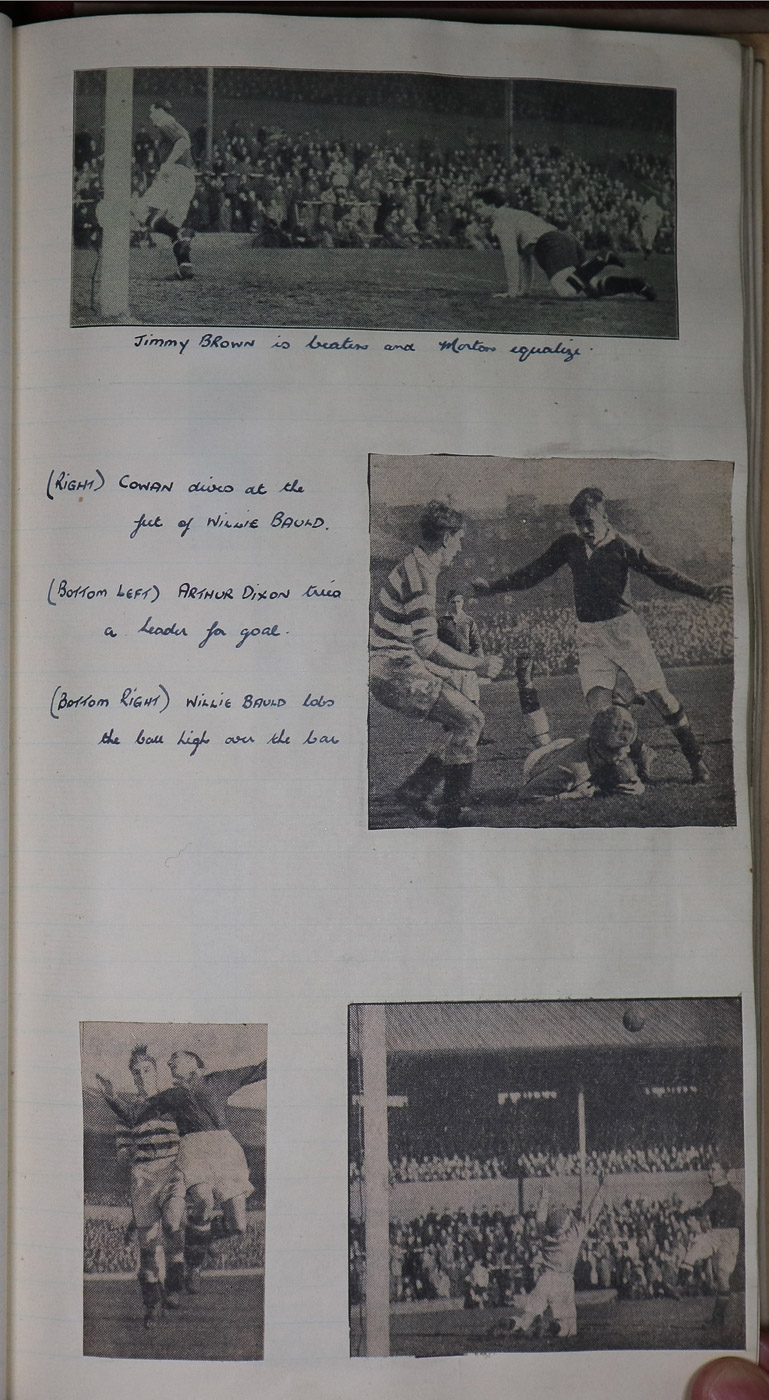 Jimmy BROWN is beaten and Morton equalize.
(RIGHT) COWAN dives at the
feet of WILLIE BAULD.
(BOTTOM LEFT) ARTHUR DIXON tries
a header for goal.
(BOTTOM RIGHT) WILLIE BAULD lobs
the ball high over the bar